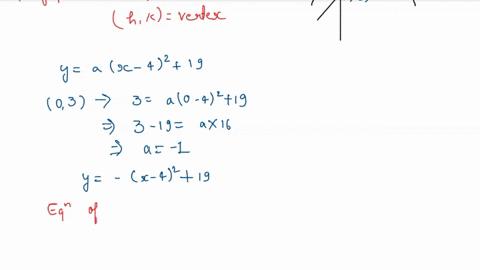 (h, k) = vertex
y = a (x-4)² + 19
(0,3) → 3 = a(0-4)² + 19
⇒ 3-19 = a×16
⇒ a = -1
y = - (x-4)² + 19
Eqⁿ of